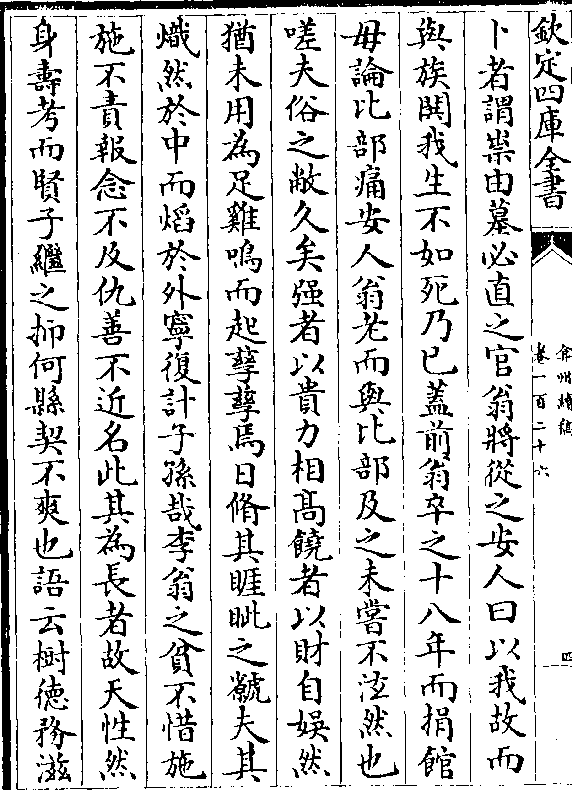 欽定四庫全書
弇州續稿
卷一百二十六
四
卜者謂祟由墓必直之官翁將從之安人曰以我故而
與族鬩我生不如死乃已蓋前翁卒之十八年而捐館
毋論比部痛安人翁老而與比部及之未嘗不泫然也
嗟夫俗之敝久矣强者以貴力相髙饒者以財自娱然
猶未用為足雞鳴而起孽孽焉日脩其睚眦之虩夫其
熾然於中而熖於外寧復計子孫哉李翁之貧不惜施
施不責報念不及仇善不近名此其為長者故天性然
身壽考而賢子繼之抑何縣契不爽也語云樹徳務滋